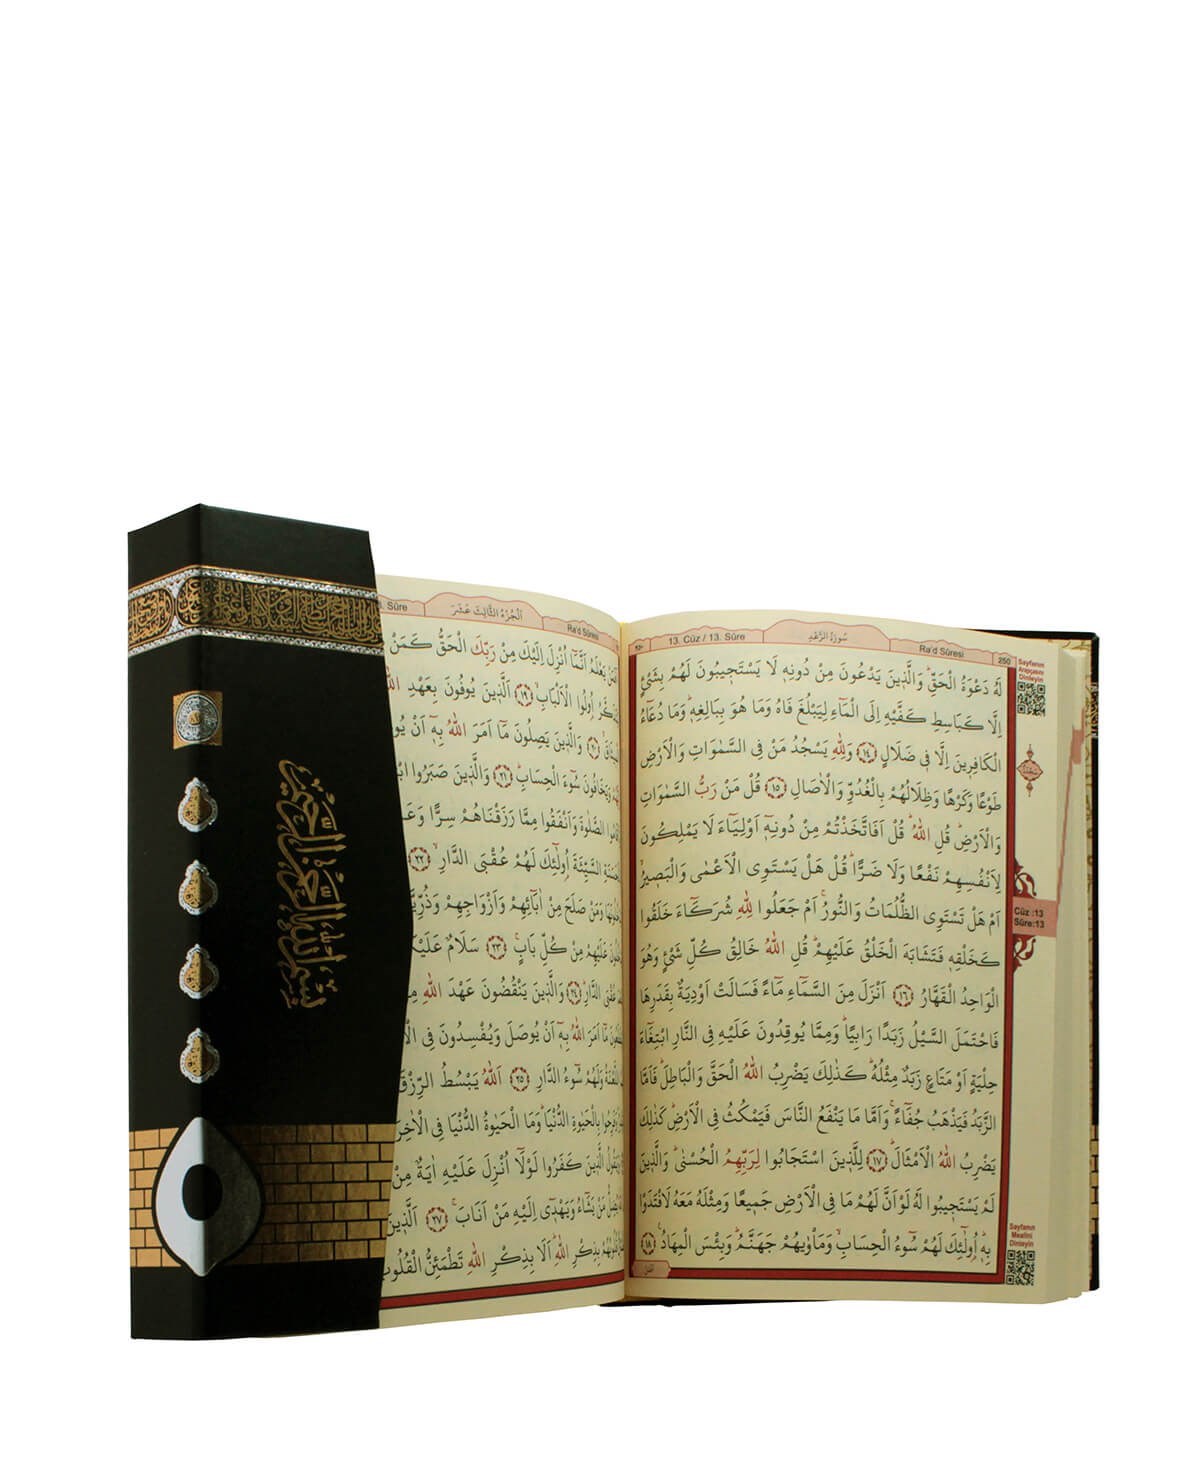 13. Cüz / 13. Sûre
سُورَةُ الرَّعْدِ
Ra'd Sûresi
250
لَهُ دَعْوَةُ الْحَقِّ وَالَّذ۪ينَ يَدْعُونَ مِنْ دُونِه۪ لَا يَسْتَج۪يبُونَ لَهُمْ بِشَيْءٍ
اِلَّا كَبَاسِطِ كَفَّيْهِ اِلَى الْمَٓاءِ لِيَبْلُغَ فَاهُ وَمَا هُوَ بِبَالِغِه۪ وَمَا دُعَٓاءُ
الْكَافِر۪ينَ اِلَّا ف۪ي ضَلَالٍ ﴿١٤﴾ وَلِلّٰهِ يَسْجُدُ مَنْ فِي السَّمٰوَاتِ وَالْاَرْضِ
طَوْعًا وَكَرْهًا وَظِلَالُهُمْ بِالْغُدُوِّ وَالْاٰصَالِ ﴿١٥﴾ قُلْ مَنْ رَبُّ السَّمٰوَاتِ
وَالْاَرْضِ قُلِ اللّٰهُ قُلْ اَفَاتَّخَذْتُمْ مِنْ دُونِه۪ٓ اَوْلِيَٓاءَ لَا يَمْلِكُونَ
لِاَنْفُسِهِمْ نَفْعًا وَلَا ضَرًّا قُلْ هَلْ يَسْتَوِي الْاَعْمٰى وَالْبَص۪يرُ
اَمْ هَلْ تَسْتَوِي الظُّلُمَاتُ وَالنُّورُ اَمْ جَعَلُوا لِلّٰهِ شُرَكَٓاءَ خَلَقُوا
كَخَلْقِه۪ فَتَشَابَهَ الْخَلْقُ عَلَيْهِمْ قُلِ اللّٰهُ خَالِقُ كُلِّ شَيْءٍ وَهُوَ
الْوَاحِدُ الْقَهَّارُ ﴿١٦﴾ اَنْزَلَ مِنَ السَّمَٓاءِ مَٓاءً فَسَالَتْ اَوْدِيَةٌ بِقَدَرِهَا
فَاحْتَمَلَ السَّيْلُ زَبَدًا رَابِيًا وَمِمَّا يُوقِدُونَ عَلَيْهِ فِي النَّارِ ابْتِغَٓاءَ
حِلْيَةٍ اَوْ مَتَاعٍ زَبَدٌ مِثْلُهُ كَذٰلِكَ يَضْرِبُ اللّٰهُ الْحَقَّ وَالْبَاطِلَ فَاَمَّا
الزَّبَدُ فَيَذْهَبُ جُفَٓاءً وَاَمَّا مَا يَنْفَعُ النَّاسَ فَيَمْكُثُ فِي الْاَرْضِ كَذٰلِكَ
يَضْرِبُ اللّٰهُ الْاَمْثَالَ ﴿١٧﴾ لِلَّذ۪ينَ اسْتَجَابُوا لِرَبِّهِمُ الْحُسْنٰى وَالَّذ۪ينَ
لَمْ يَسْتَج۪يبُوا لَهُ لَوْ اَنَّ لَهُمْ مَا فِي الْاَرْضِ جَم۪يعًا وَمِثْلَهُ مَعَهُ لَافْتَدَوْا
بِه۪ اُو۬لٰٓئِكَ لَهُمْ سُٓوءُ الْحِسَابِ وَمَأْوٰيهُمْ جَهَنَّمُ وَبِئْسَ الْمِهَادُ ﴿١٨﴾
Sayfanın
Arapçasını
Dinleyin
Cüz :13
Sûre:13
Sayfanın
Mealini
Dinleyin
. Sûre
اَلْجُزْءُ الثَّالِثَ عَشَرَ
Ra'd Sûresi
يَعْلَمُ اَنَّمَٓا اُنْزِلَ اِلَيْكَ مِنْ رَبِّكَ الْحَقُّ كَمَنْ
اُو۬لُوا الْاَلْبَابِ ﴿١٩﴾ اَلَّذ۪ينَ يُوفُونَ بِعَهْدِ
﴿٢٠﴾ وَالَّذ۪ينَ يَصِلُونَ مَٓا اَمَرَ اللّٰهُ بِه۪ٓ اَنْ
وَيَخَافُونَ سُٓوءَ الْحِسَابِ ﴿٢١﴾ وَالَّذ۪ينَ صَبَرُوا
الصَّلٰوةَ وَاَنْفَقُوا مِمَّا رَزَقْنَاهُمْ سِرًّا
السَّيِّئَةَ اُو۬لٰٓئِكَ لَهُمْ عُقْبَى الدَّارِ ﴿٢٢﴾
وَمَنْ صَلَحَ مِنْ اٰبَٓائِهِمْ وَاَزْوَاجِهِمْ
عَلَيْهِمْ مِنْ كُلِّ بَابٍ ﴿٢٣﴾ سَلَامٌ
عُقْبَى الدَّارِ ﴿٢٤﴾ وَالَّذ۪ينَ يَنْقُضُونَ عَهْدَ اللّٰهِ
مَٓا اَمَرَ اللّٰهُ بِه۪ٓ اَنْ يُوصَلَ وَيُفْسِدُونَ فِي
اللَّعْنَةُ وَلَهُمْ سُٓوءُ الدَّارِ ﴿٢٥﴾ اَللّٰهُ يَبْسُطُ الرِّزْقَ
بِالْحَيٰوةِ الدُّنْيَا وَمَا الْحَيٰوةُ الدُّنْيَا فِي
الَّذ۪ينَ كَفَرُوا لَوْلَٓا اُنْزِلَ عَلَيْهِ اٰيَةٌ مِنْ
مَنْ يَشَٓاءُ وَيَهْد۪ٓي اِلَيْهِ مَنْ اَنَابَ ﴿٢٧﴾ اَلَّذ۪ينَ
بِذِكْرِ اللّٰهِ اَلَا بِذِكْرِ اللّٰهِ تَطْمَئِنُّ الْقُلُوبُ
بسم الله الرحمن الرحيم